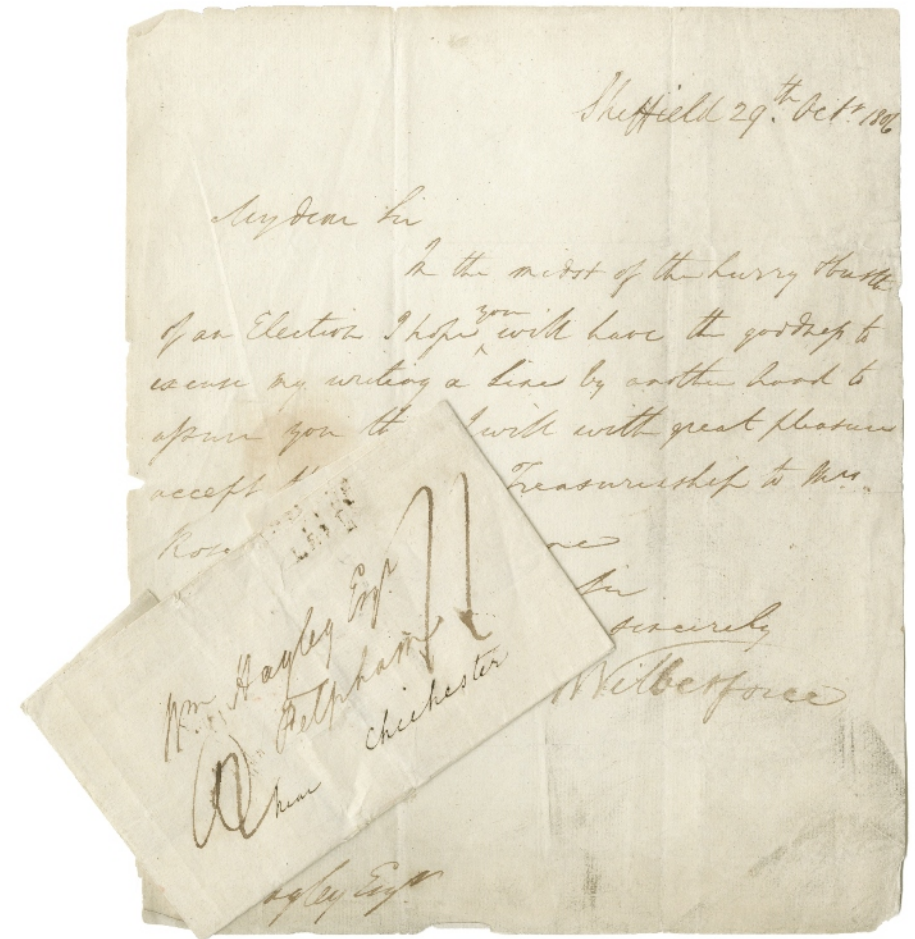 Sheffield 29th. Octr. 1806
My dear Sir
In the midst of the hurry & bustle
of an Election I hope you will have the goodness to
excuse my writing a Line by another hand to
assure you th I will with great pleasure
accept Treasurership to Mrs.
Rose ne
Sir
sincerely
W Wilberforce
Wm. Hayley Esqr
Felpham
near Chichester
ayley Esqr